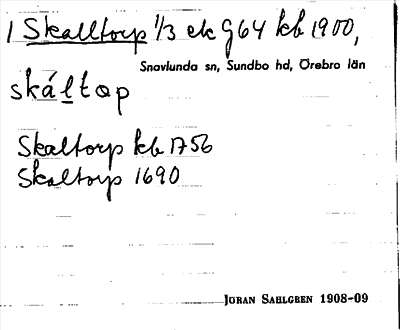 1 Skalltorp 1/3 ek g 64 kb 1900,
Snavlunda sn, Sundbo hd, Örebro län
skáltap
Skaltorp kb 1756
Skaltorp 1690
JÖRAN SAHLGREN 1908-09